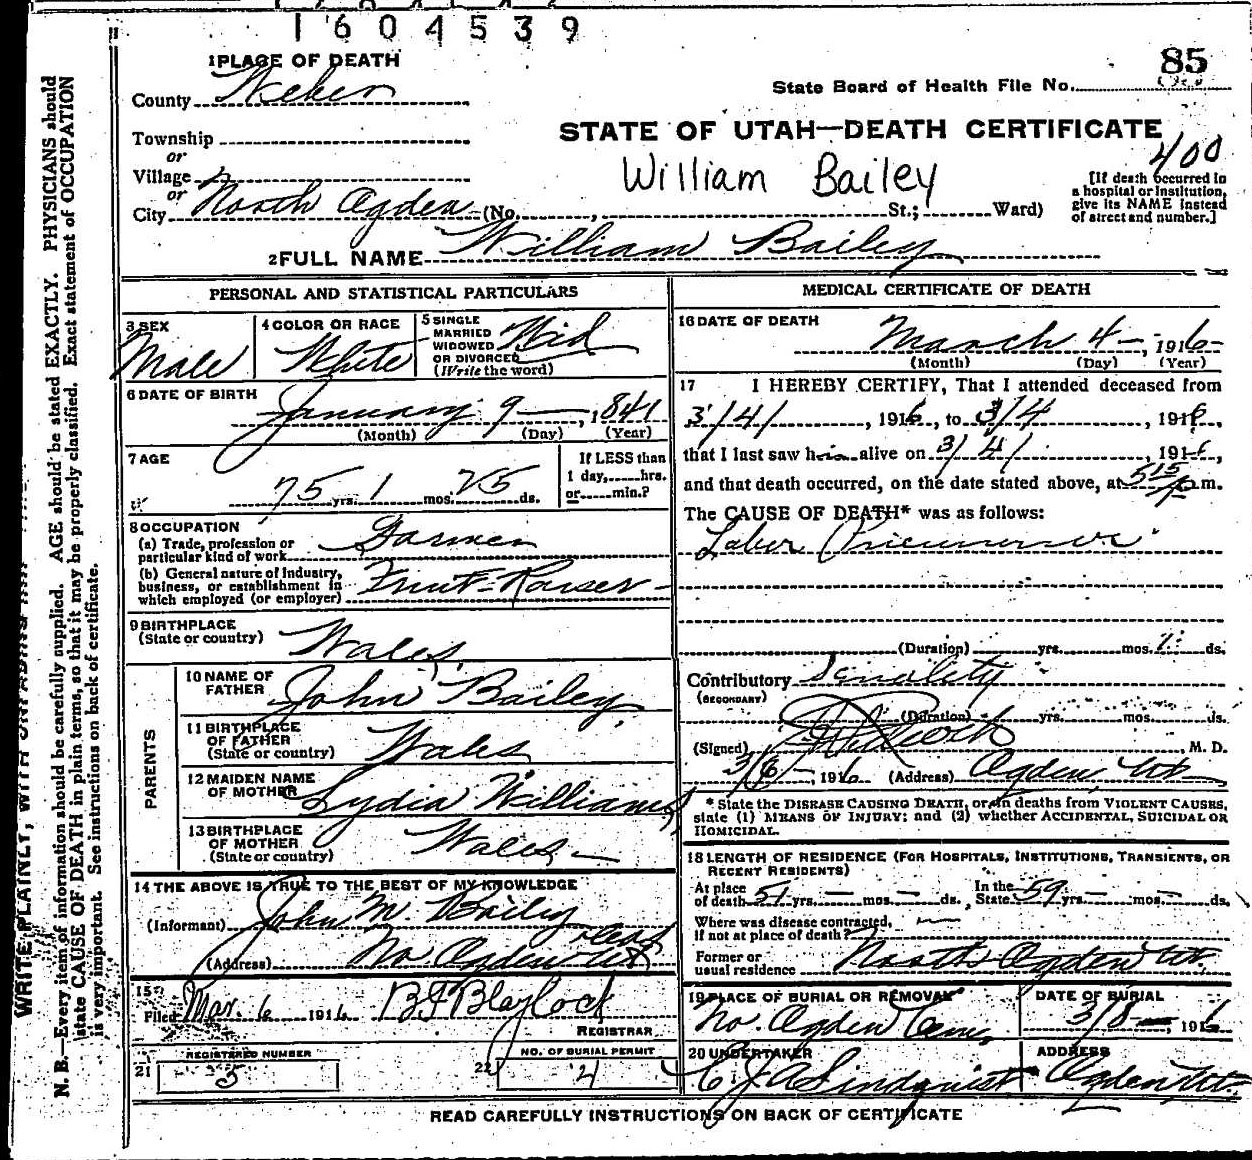 1604539
1 PLACE OF DEATH
85
County Weber
State Board of Health File No.
Township
STATE OF UTAH—DEATH CERTIFICATE
or
Village
William Bailey
400
or
City North Ogden (No. , St.; Ward)
[If death occurred in
a hospital or institution,
give its NAME instead
of street and number.]
2 FULL NAME William Bailey
PERSONAL AND STATISTICAL PARTICULARS
3 SEX
Male
4 COLOR OR RACE
White
5 SINGLE
MARRIED
WIDOWED
OR DIVORCED
(Write the word)
Wid
6 DATE OF BIRTH
January 9 — , 1841
(Month) (Day) (Year)
7 AGE
75 yrs. 1 mos. 25 ds.
If LESS than
1 day, hrs.
or min.?
8 OCCUPATION
(a) Trade, profession or
particular kind of work Farmer
(b) General nature of Industry,
business, or establishment in
which employed (or employer) Fruit-Raiser
9 BIRTHPLACE
(State or country) Wales
PARENTS
10 NAME OF
FATHER John Bailey
11 BIRTHPLACE
OF FATHER
(State or country) Wales
12 MAIDEN NAME
OF MOTHER Lydia Williams
13 BIRTHPLACE
OF MOTHER
(State or country) Wales
14 THE ABOVE IS TRUE TO THE BEST OF MY KNOWLEDGE
(Informant) John M. Bailey
(Address) No Ogden Ut
15
Filed Mar. 6 1916 B F Blaylock
REGISTRAR
21 REGISTERED NUMBER
5
22 NO. OF BURIAL PERMIT
4
MEDICAL CERTIFICATE OF DEATH
16 DATE OF DEATH
March 4 — , 1916
(Month) (Day) (Year)
17 I HEREBY CERTIFY, That I attended deceased from
3/4/ , 1916, to 3/4 , 191
that I last saw him alive on 3/4/ , 191
and that death occurred, on the date stated above, at 5 15 p m.
The CAUSE OF DEATH* was as follows:
Lobar Pneumonia
(Duration) yrs. mos. ds.
Contributory Senility
(SECONDARY)
(Duration) yrs. mos. ds.
(Signed) , M. D.
3/6 — , 1916 (Address) Ogden Ut
* State the DISEASE CAUSING DEATH, or, in deaths from VIOLENT CAUSES,
state (1) MEANS OF INJURY; and (2) whether ACCIDENTAL, SUICIDAL OR
HOMICIDAL.
18 LENGTH OF RESIDENCE (FOR HOSPITALS, INSTITUTIONS, TRANSIENTS, OR
RECENT RESIDENTS)
At place
of death 51 yrs. — mos. — ds.
In the
State 59 yrs. — mos. — ds.
Where was disease contracted,
If not at place of death? —
Former or
usual residence North Ogden Ut.
19 PLACE OF BURIAL OR REMOVAL
No. Ogden Cem,
DATE OF BURIAL
3/8 — , 1916
20 UNDERTAKER
C. J. A Lindquist
ADDRESS
Ogden Ut.
READ CAREFULLY INSTRUCTIONS ON BACK OF CERTIFICATE
WRITE PLAINLY, WITH
N. B.—Every item of information should be carefully supplied. AGE should be stated EXACTLY. PHYSICIANS should
state CAUSE OF DEATH in plain terms, so that it may be properly classified. Exact statement of OCCUPATION
is very important. See instructions on back of certificate.